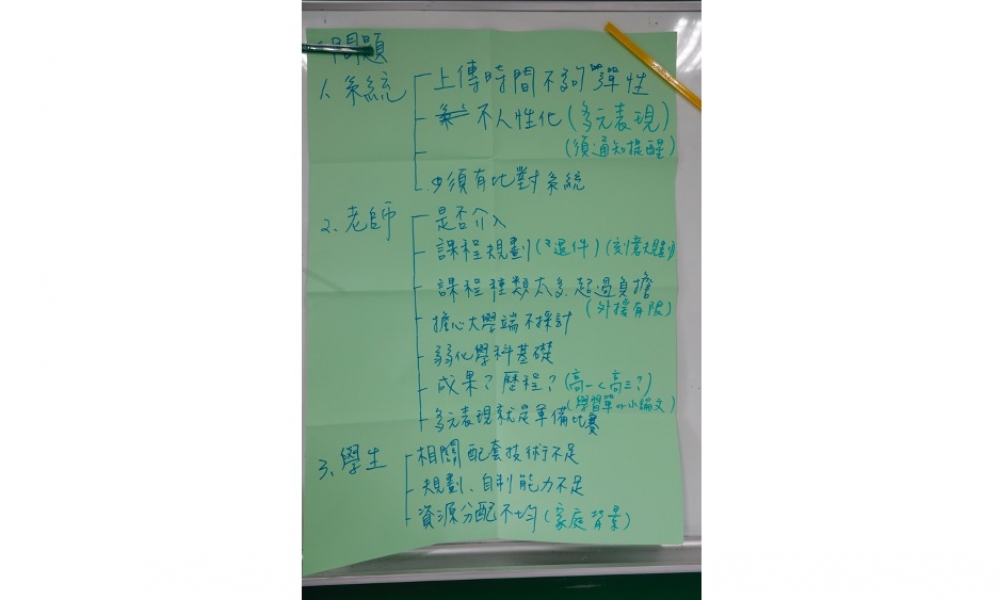 問題
1、系統 上傳時間不夠彈性
不人性化(多元表現)
(須通知提醒)
必須有比對系統
2、老師 是否介入
課程規劃(3選件)(刻意規劃)
課程種類太多,超過負擔
(外援有限)
擔心大學端不採計
弱化學科基礎
成果?歷程?(高一<高三?)
(學習單 小論文)
多元表現就是軍備比賽
3、學生 相關配套技術不足
規劃、自制能力不足
資源分配不均(家庭背景)